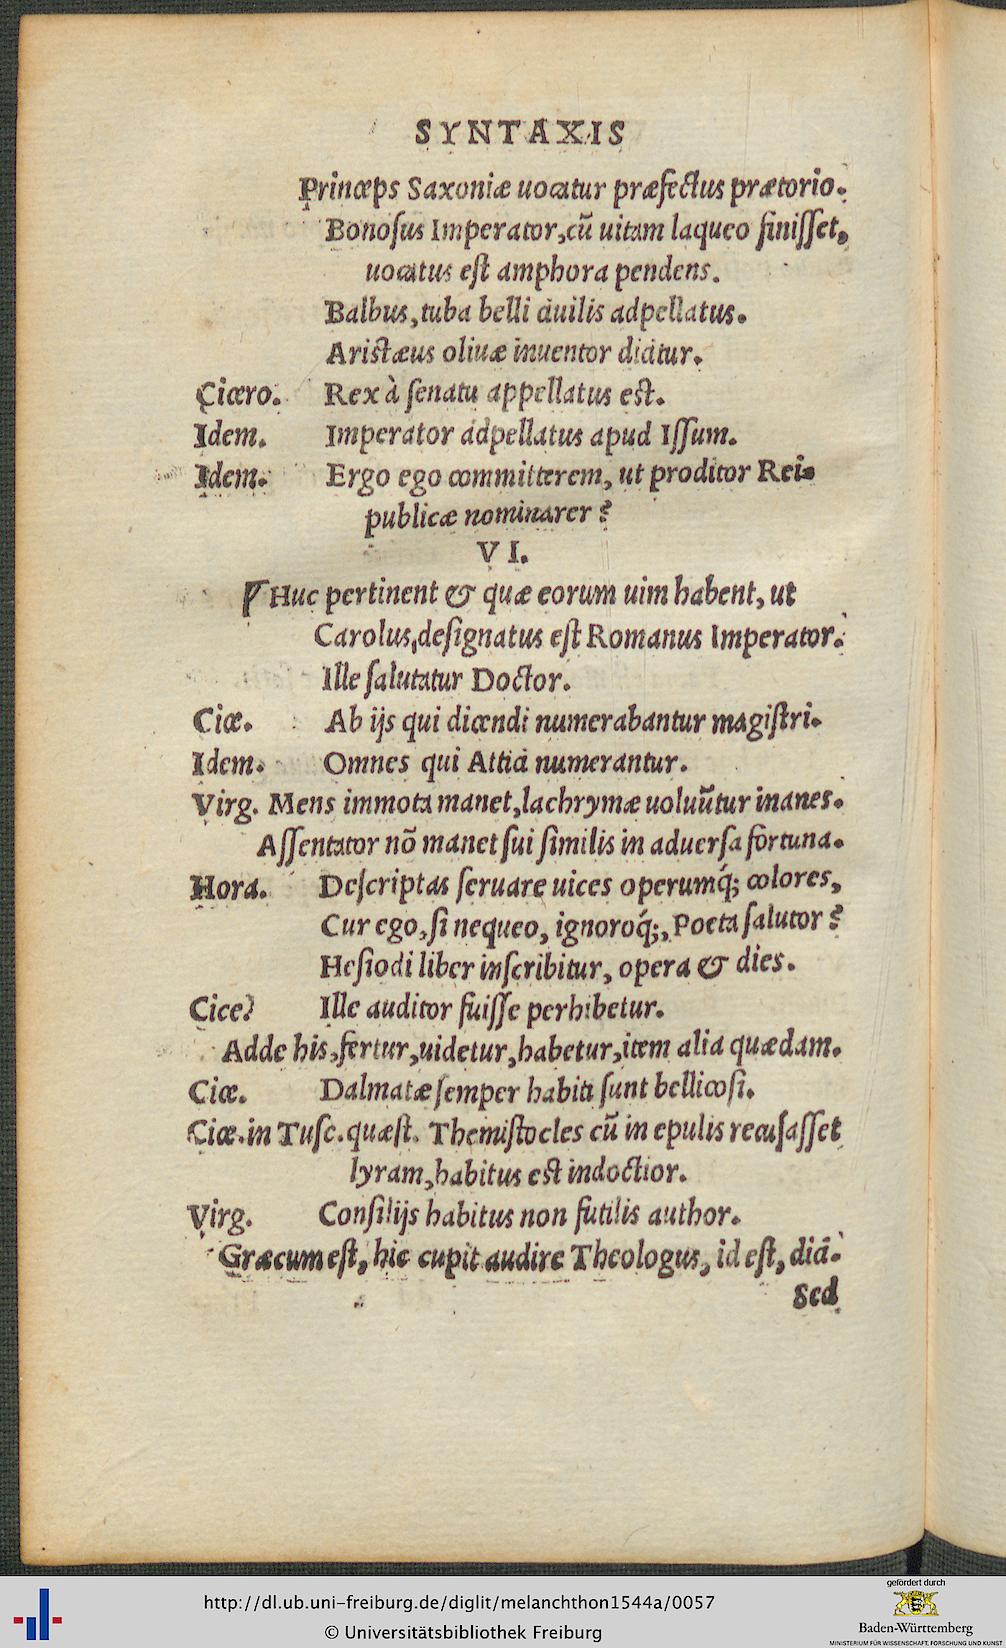 SYNTAXIS
Princeps Saxoniæ uocatur præfectus prætorio.
Bonosus Imperator, cū uitam laqueo finisset,
uocatus est amphora pendens.
Balbus, tuba belli ciuilis adpellatus.
Aristæus oliuæ inuentor dicitur.
Cicero. Rex à senatu appellatus est.
Idem. Imperator adpellatus apud Issum.
Idem. Ergo ego committerem, ut proditor Rei
publicæ nominarer?
VI.
Huc pertinent & quæ eorum uim habent, ut
Carolus, designatus est Romanus Imperator.
Ille salutatur Doctor.
Cice. Ab ijs qui dicendi numerabantur magistri.
Idem. Omnes qui Attici numerantur.
Virg. Mens immota manet, lachrymæ uoluūtur inanes.
Assentator nō manet sui similis in aduersa fortuna.
Hora. Descriptas seruare uices operumq́; colores,
Cur ego, si nequeo, ignoroq́;, Poeta salutor?
Hesiodi liber inscribitur, opera & dies.
Cice. Ille auditor fuisse perhibetur.
Adde his, fertur, uidetur, habetur, item alia quædam.
Cice. Dalmatæ semper habiti sunt bellicosi.
Cice. in Tusc. quæst. Themistocles cū in epulis recusasset
lyram, habitus est indoctior.
Virg. Consilijs habitus non futilis author.
Græcum est, hic cupit audire Theologus, id est, dici.
Sed
http://dl.ub.uni-freiburg.de/diglit/melanchthon1544a/0057
© Universitätsbibliothek Freiburg
gefördert durch
Baden-Württemberg
MINISTERIUM FÜR WISSENSCHAFT, FORSCHUNG UND KUNST